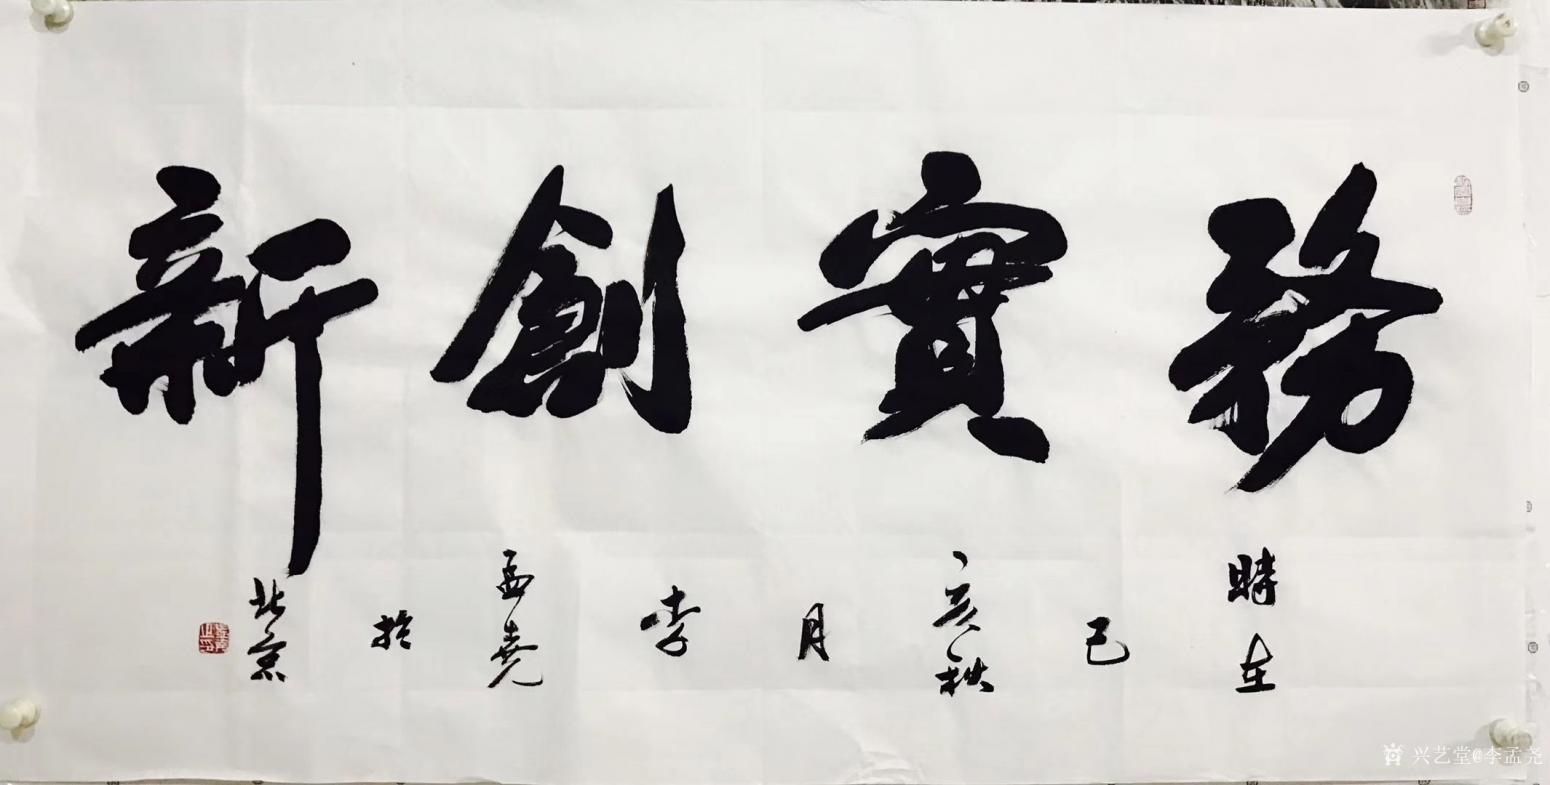 務實創新
時在己亥秋月李孟堯於北京
兴艺堂@李孟尧